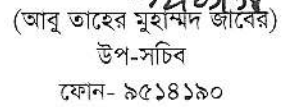 (আবু তাহের মুহাম্মদ জাবের)
উপ-সচিব
ফোন- ৯৫১৪১৯০